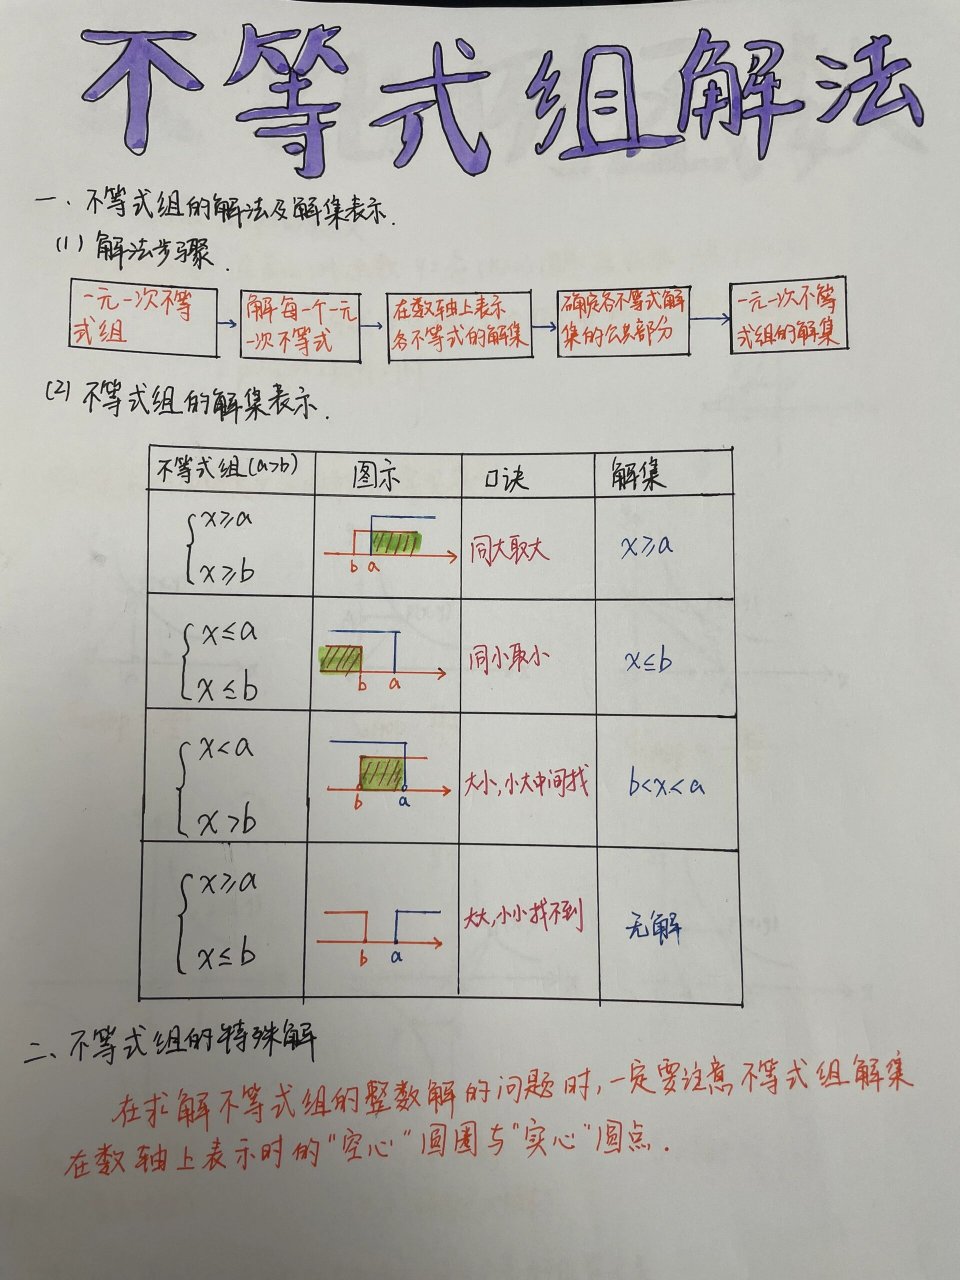 不等式组解法
一、不等式组的解法及解集表示.
(1) 解法步骤.
一元一次不等
式组
解每一个一元
一次不等式
在数轴上表示
各不等式的解集
确定各不等式解
集的公共部分
一元一次不等
式组的解集
(2) 不等式组的解集表示.
不等式组(a>b) 图示 口诀 解集
x≥a
x≥b
b a
同大取大
x≥a
x≤a
x≤b
b a
同小取小
x≤b
x<a
x>b
b a
大小,小大中间找
b<x<a
x≥a
x≤b
b a
大大,小小找不到
无解
二、不等式组的特殊解
在求解不等式组的整数解的问题时,一定要注意不等式组解集
在数轴上表示时的"空心"圆圈与"实心"圆点.